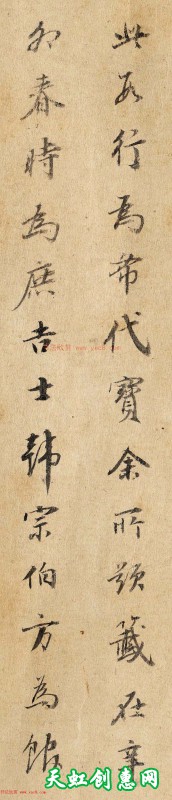 此為行焉希代寶余所題籤在辛
卯春時為庶吉士韓宗伯方為館
天虹创惠网